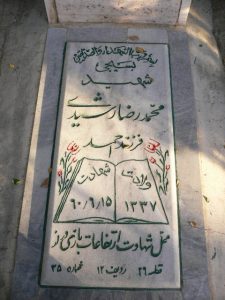 بسیجی
شهید
محمدرضا رشیدی
فرزند احمد
ولادت
شهادت
۱۳۳۷
۶۰/۶/۱۵
محل شهادت ارتفاعات بازی دراز
قطعه ۲۶ ردیف ۱۲ شماره ۳۵